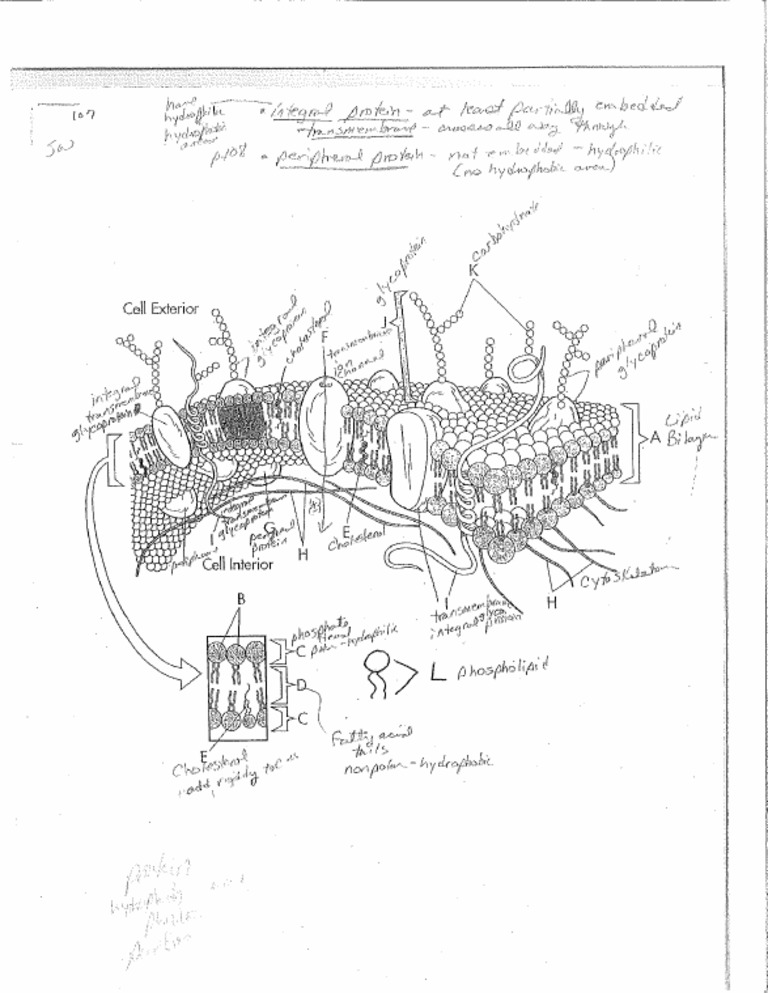 107
have
hydrophilic
hydrophobic
areas
• integral protein - at least partially embedded
transmembrane - across all way through
p108 • peripheral protein - not embedded - hydrophilic
(no hydrophobic area)
carbohydrate
glycoprotein
K
Cell Exterior
integral
glycoprotein
cholesterol
F
J
transmembrane
ion
channel
peripheral
glycoprotein
integral
transmembrane
glycoprotein
A Lipid
Bilayer
integral
transmembrane
glycoprotein
I
G
peripheral
protein
H
E
Cholesterol
Cell Interior
I
transmembrane
integral glyco
protein
H
Cytoskeleton
B
phosphate
head
C polar-hydrophilic
D
C
L phospholipid
E
Cholesterol
add rigidity
Fatty acid
tails
nonpolar-hydrophobic
protein